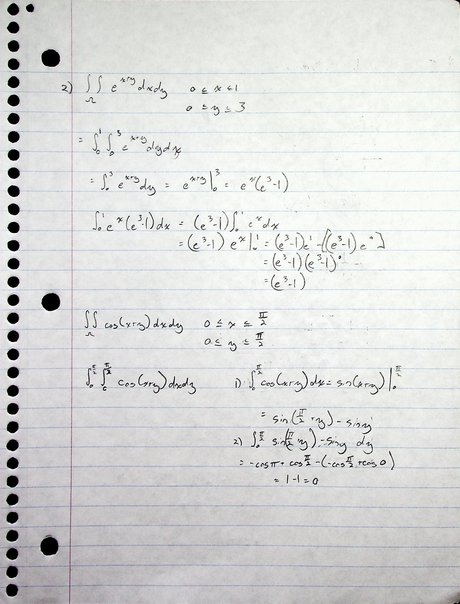 2) ∫∫_Ω e^{x+y} dxdy   0 ≤ x ≤ 1
0 ≤ y ≤ 3
= ∫_0^1 ∫_0^3 e^{x+y} dydx
= ∫_0^3 e^{x+y} dy = e^{x+y} |_0^3 = e^x(e^3-1)
∫_0^1 e^x(e^3-1) dx = (e^3-1) ∫_0^1 e^x dx
= (e^3-1) e^x |_0^1 = (e^3-1)e^1 - [(e^3-1) e^0]
= (e^3-1)(e^3-1)^0
= (e^3-1)
∫∫_Ω cos(x+y) dxdy   0 ≤ x ≤ π/2
0 ≤ y ≤ π/2
∫_0^{π/2} ∫_0^{π/2} cos(x+y) dxdy   1) ∫_0^{π/2} cos(x+y) dx = sin(x+y) |_0^{π/2}
= sin(π/2 + y) - sin y
2) ∫_0^{π/2} sin(π/2 + y) - sin y dy
= -cos π + cos π/2 - (-cos π/2 + cos 0)
= 1-1 = 0